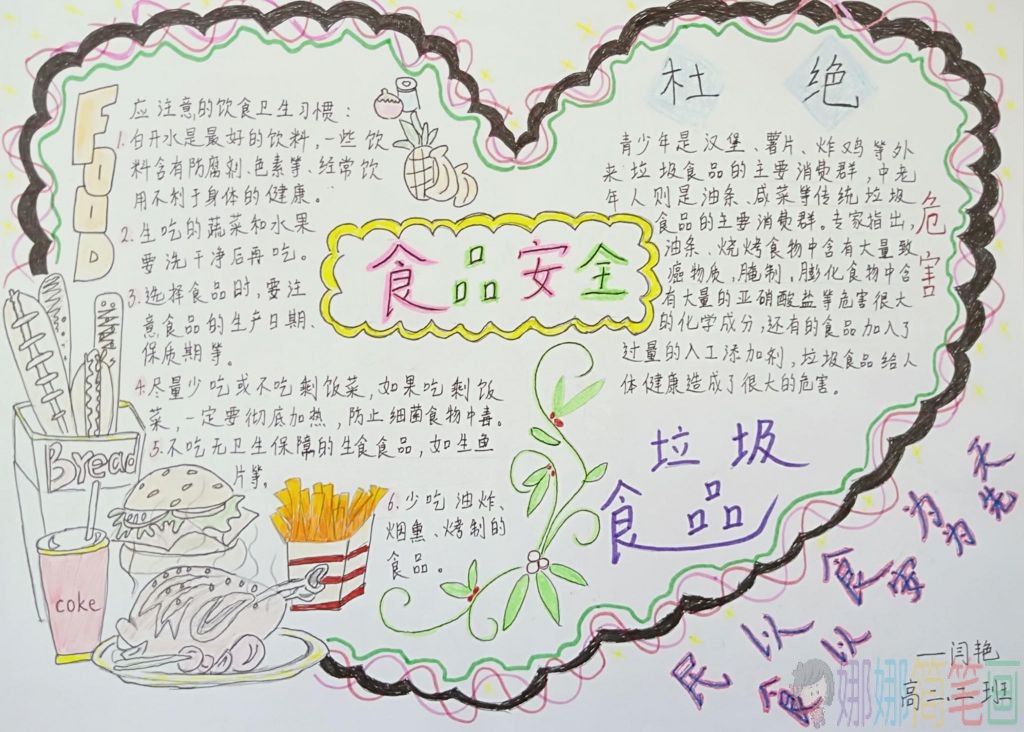 FOOD
应注意的饮食卫生习惯：
1.白开水是最好的饮料，一些饮
料含有防腐剂、色素等、经常饮
用不利于身体的健康。
2.生吃的蔬菜和水果
要洗干净后再吃。
3.选择食品时，要注
意食品的生产日期、
保质期等。
4.尽量少吃或不吃剩饭菜，如果吃剩饭
菜，一定要彻底加热，防止细菌食物中毒。
5.不吃无卫生保障的生食食品，如生鱼
片等。
6.少吃油炸、
烟熏、烤制的
食品。
Bread
coke
食品安全
杜绝
青少年是汉堡、薯片、炸鸡等外
来垃圾食品的主要消费群，中老
年人则是油条、咸菜等传统垃圾
食品的主要消费群。专家指出，
油条、烧烤食物中含有大量致
癌物质，腌制，膨化食物中含
有大量的亚硝酸盐等危害很大
的化学成分，还有的食品加入了
过量的人工添加剂，垃圾食品给人
体健康造成了很大的危害。
危害
垃圾
食品
民以食为天
食以安为先
—闫艳
高二.二班
娜娜简笔画